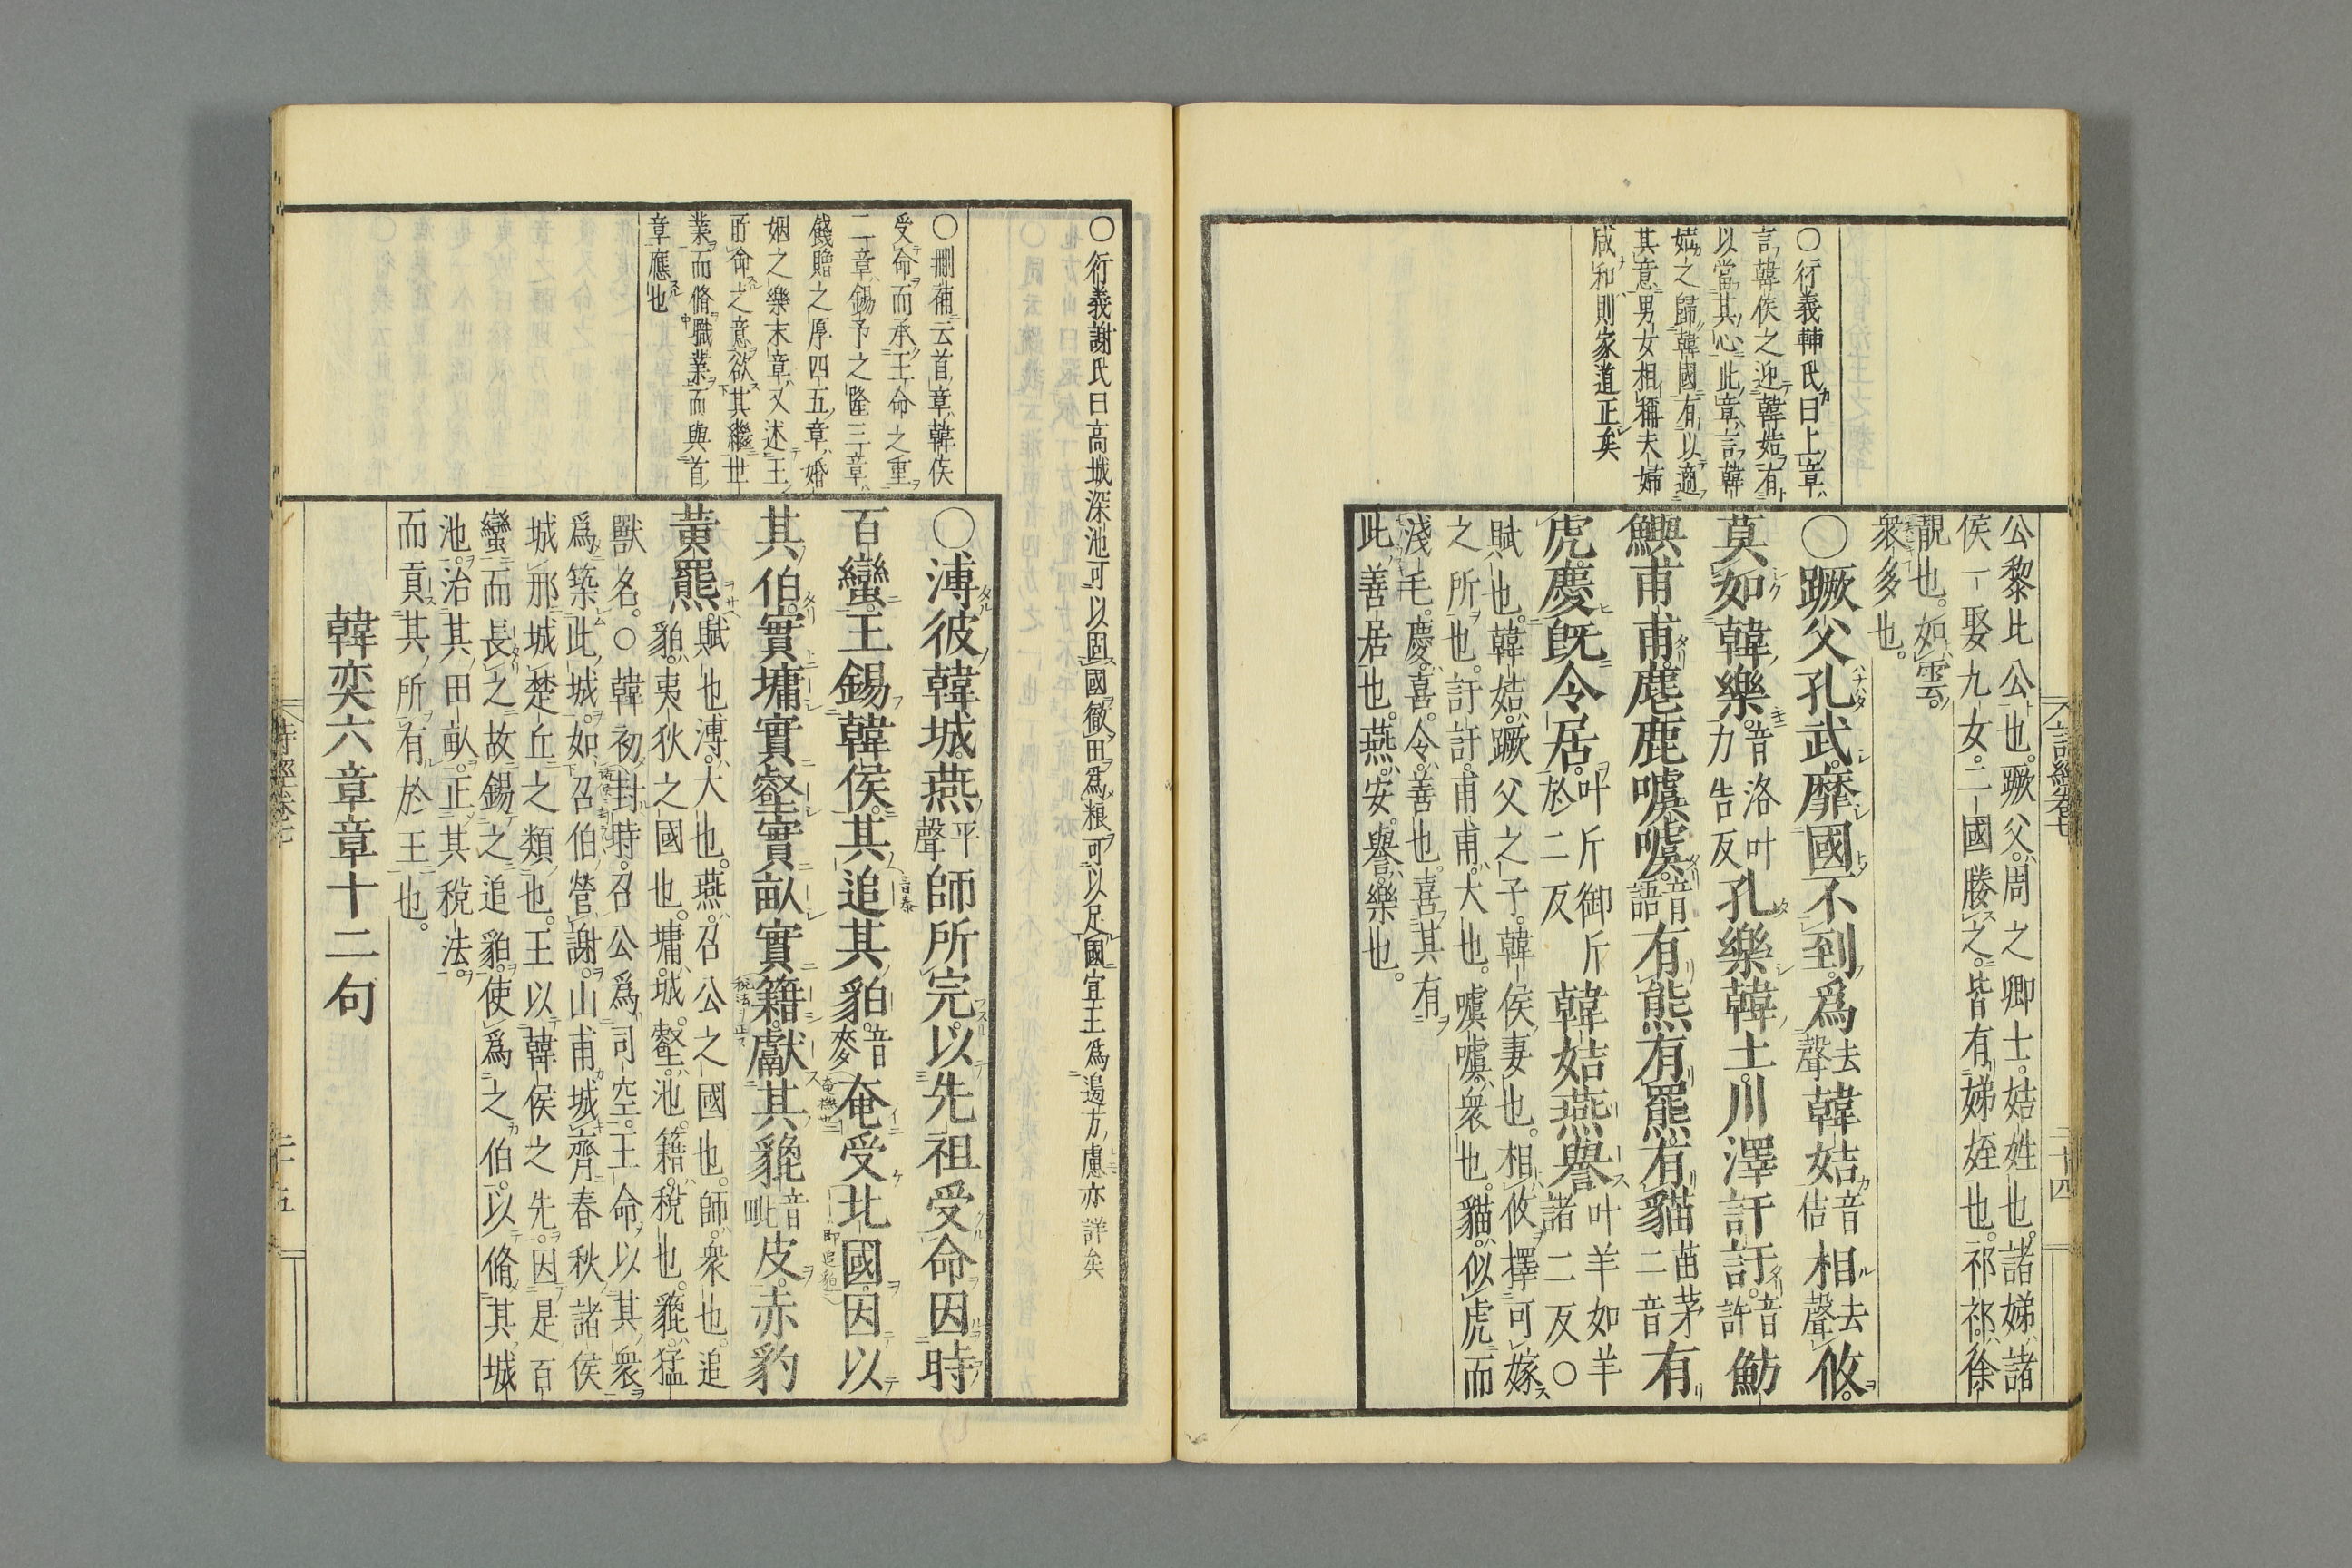 詩經卷七
二十四
○衍義輔氏曰上章
言韓侯之迎韓姞有
以當其心此章言韓
姞之歸韓國有以適
其意男女相稱夫婦
咸和則家道正矣
公黎比公也。蹶父。周之卿士。姞姓也。諸娣諸
侯一娶九女。二國媵之。皆有娣姪也。祁祁。徐
靚也。如雲。
衆多也。
○蹶父孔武。靡國不到。爲去聲韓姞音佶相去聲攸。
莫如韓樂。音洛叶力告反孔樂韓土。川澤訏訏。音許魴
鱮甫甫。麀鹿噳噳。音語有熊有羆。有貓苗茅二音有
虎。慶旣令居。叶斤御斤於二反韓姞燕譽。叶羊如羊諸二反○
賦也。韓姞。蹶父之子。韓侯妻也。相攸。擇可嫁
之所也。訏訏。甫甫。大也。噳噳。衆也。貓。似虎而
淺毛。慶。喜。令。善也。喜其有
此善居也。燕。安。譽。樂也。
○衍義謝氏曰高城深池可以固國徹田爲粮可以足國宣王爲邊方慮亦詳矣
○刪補云首章韓侯
受命而承王命之重
二章錫予之隆三章
餞贈之厚四五章婚
姻之樂末章又述王
所命之意欲其繼世
業而脩職業而與首
章應也
○溥彼韓城。燕平聲師所完。以先祖受命。因時
百蠻。王錫韓侯。其追其貊。音麥奄受北國。因以
其伯。實墉實壑。實畝實籍。獻其貔音毗皮。赤豹
黃羆。賦也。溥。大也。燕。召公之國也。師。衆也。追
貊。夷狄之國也。墉。城。壑。池。籍。稅也。貔。猛
獸名。○韓初封時。召公爲司空。王命以其衆
爲築此城。如召伯營謝。山甫城齊。春秋諸侯
城邢城楚丘之類也。王以韓侯之先。因是百
蠻而長之。故錫之追貊。使爲之伯。以脩其城
池。治其田畝。正其稅法。
而貢其所有於王也。
韓奕六章章十二句
詩經卷七
二十五